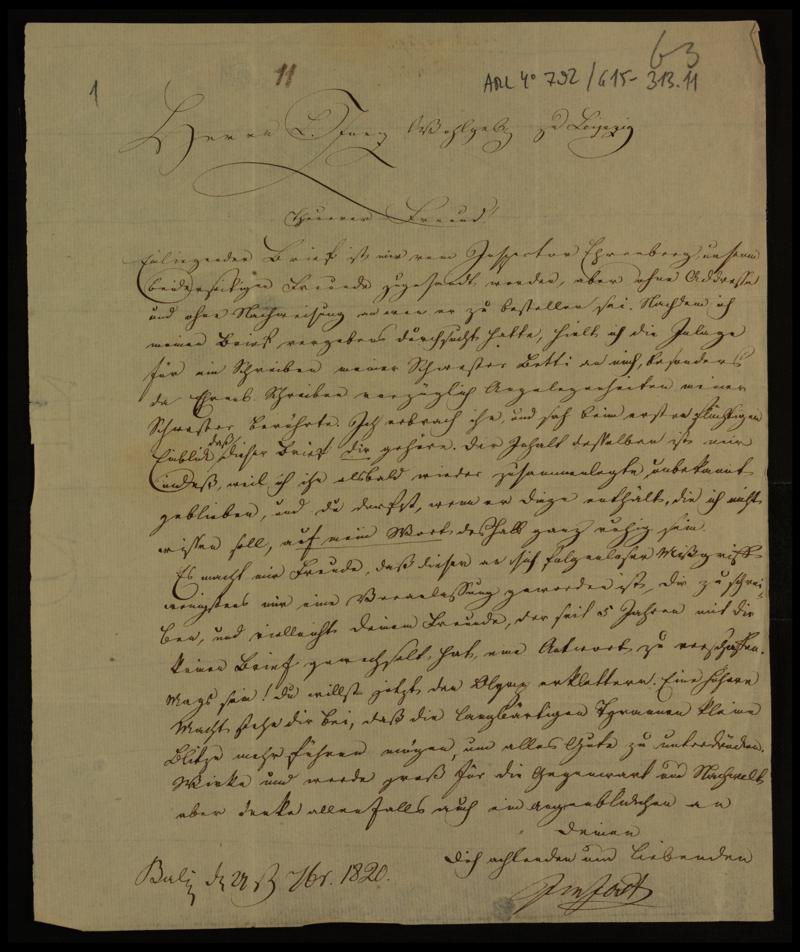 63
1 11 ADL 4° 792/615-313.11
Herrn L. Wohlgeb zu Leipzig
Theurer Freund!
Einliegender Brief ist mir vom Inspector Ehrenberg, unserm
beiderseitigen Freunde zugesandt worden, aber ohne Addresse
und ohne Nachweisung an wen er zu bestellen sei. Nachdem ich
meinen Brief vergebens durchsucht hatte, hielt ich die Inlage
für ein Schreiben meiner Schwester Betti an mich, besonders
da Schreiben vorzüglich Angelegenheiten meiner
Schwester berührte. Ich erbrach ihn, und sah beim ersten flüchtigen
Einblick, daß dieser Brief dir gehöre. Der Inhalt desselben ist mir
indeß, weil ich ihn alsbald wieder zusammenlegte, unbekannt
geblieben, und du darfst, wenn er Dinge enthält, die ich nicht
wissen soll, auf mein Wort deshalb ganz ruhig sein.
Es macht mir Freude, daß dieser an sich folgenloser Mißgriff
wenigstens mir eine Veranlassung geworden ist, dir zu schrei-
ben, und vielleicht deinem Freunde, der seit 5 Jahren mit dir
keinen Brief gewechselt hat, eine Antwort zu verschaffen.
Mags sein! Du willst jetzt den Olymp erklettern. Eine höhere
Macht stehe dir bei, daß die langbärtigen Tyrannen kleine
Blitze mehr führen mögen, um alles Gute zu unterdrücken.
Wirke und werde groß für die Gegenwart und Nachwelt
aber denke allenfalls auch ein augenblickchen an
Deinen
Dich achtenden und liebenden
7br. 1820.